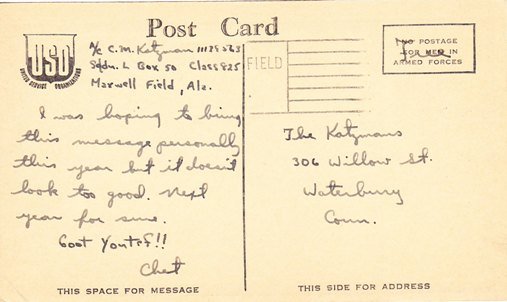 Post Card
USO
UNITED SERVICE ORGANIZATIONS
A/c C.M. Katzman
Sqdn. L Box 50 Class 825
Maxwell Field, Ala.
FIELD
NO POSTAGE
FOR MEN IN
ARMED FORCES
I was hoping to bring
this message personally
this year but it doesn't
look too good. Next
year for sure.
Goot Yontef!!
Chet
THIS SPACE FOR MESSAGE
The Katzmans
306 Willow St.
Waterbury
Conn.
THIS SIDE FOR ADDRESS